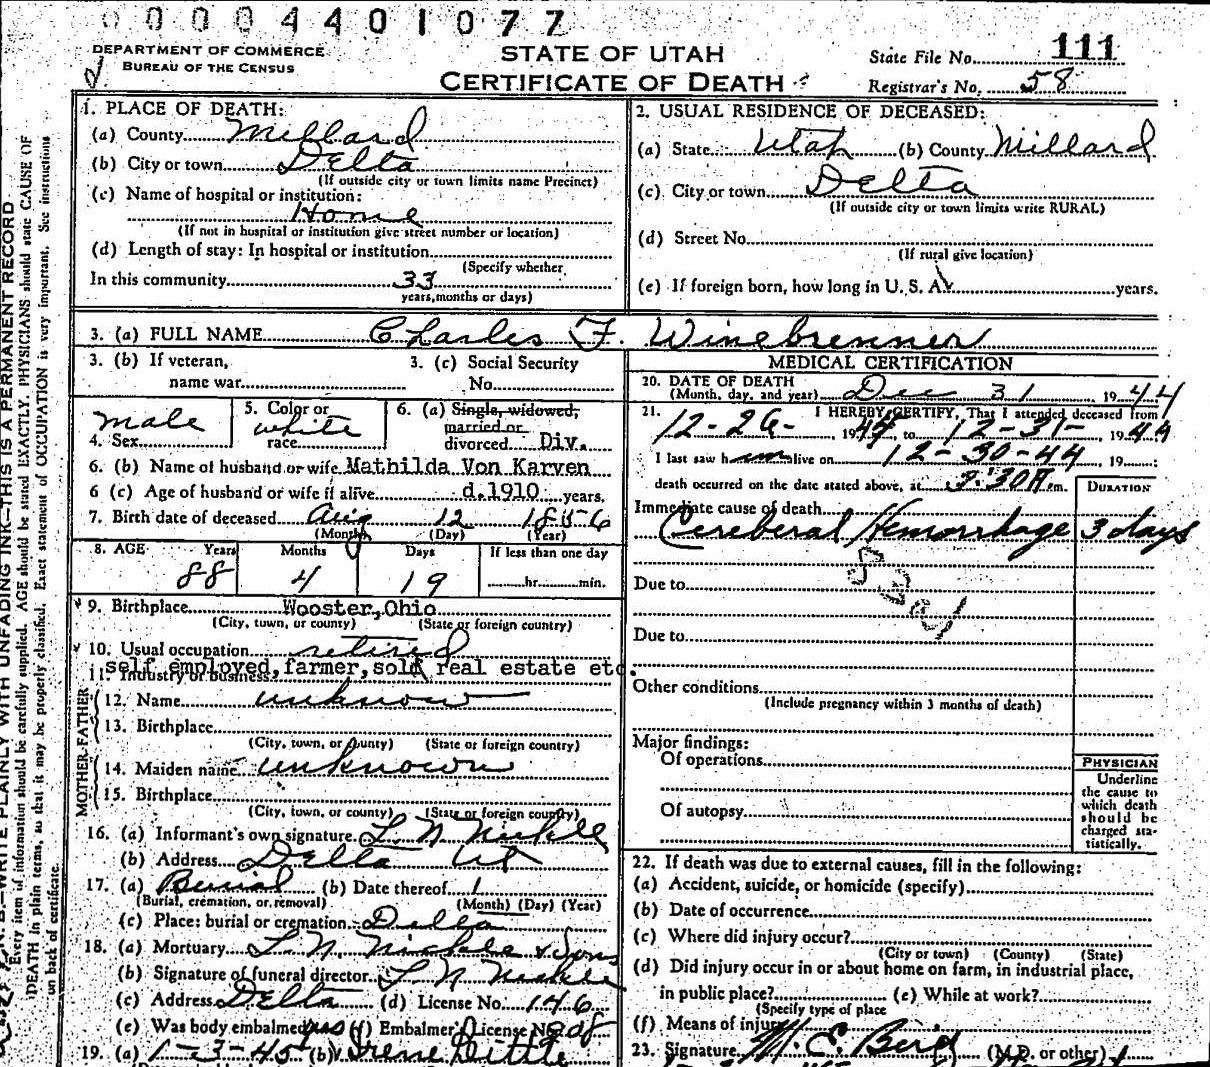 0 0 0 0 4 4 0 1 0 7 7
DEPARTMENT OF COMMERCE
BUREAU OF THE CENSUS
STATE OF UTAH
CERTIFICATE OF DEATH
State File No. 111
Registrar's No. 58
1. PLACE OF DEATH:
(a) County Millard
(b) City or town Delta
(If outside city or town limits name Precinct)
(c) Name of hospital or institution:
Home
(If not in hospital or institution give street number or location)
(d) Length of stay: In hospital or institution
(Specify whether
In this community 33
years, months or days)
2. USUAL RESIDENCE OF DECEASED:
(a) State Utah (b) County Millard
(c) City or town Delta
(If outside city or town limits write RURAL)
(d) Street No.
(If rural give location)
(e) If foreign born, how long in U. S. A. years.
3. (a) FULL NAME Charles F. Winebrenner
3. (b) If veteran,
name war
3. (c) Social Security
No.
4. Sex male
5. Color or
race white
6. (a) Single, widowed,
married or
divorced Div.
6. (b) Name of husband or wife Mathilda Von Karven
6 (c) Age of husband or wife if alive d.1910 years.
7. Birth date of deceased Aug 12 1856
(Month) (Day) (Year)
8. AGE Years Months Days If less than one day
88 4 19 hr. min.
9. Birthplace Wooster, Ohio
(City, town, or county) (State or foreign country)
10. Usual occupation retired
self employed, farmer, sold real estate etc.
11. Industry or business
MOTHER-FATHER
12. Name unknown
13. Birthplace
(City, town, or county) (State or foreign country)
14. Maiden name unknown
15. Birthplace
(City, town, or county) (State or foreign country)
16. (a) Informant's own signature L. N. Nickle
(b) Address Delta Ut
17. (a) Burial (b) Date thereof 1
(Burial, cremation, or removal) (Month) (Day) (Year)
(c) Place: burial or cremation Delta
18. (a) Mortuary L. N. Nickle & Sons
(b) Signature of funeral director L N Nickle
(c) Address Delta (d) License No. 146
(e) Was body embalmed yes (f) Embalmer's License No.
19. (a) 1-3-45 (b) Irene Dittle
MEDICAL CERTIFICATION
20. DATE OF DEATH
(Month, day, and year) Dec 31 1944
21. I HEREBY CERTIFY, That I attended deceased from
12-26- 1944 to 12-31- 1944
I last saw him alive on 12-30-44, 19 :
death occurred on the date stated above, at 3:30 A m.
DURATION
Immediate cause of death
Cereberal Hemorrhage 3 days
Due to
Due to
Other conditions
(Include pregnancy within 3 months of death)
Major findings:
Of operations
Of autopsy
PHYSICIAN
Underline
the cause to
which death
should be
charged sta-
tistically.
22. If death was due to external causes, fill in the following:
(a) Accident, suicide, or homicide (specify)
(b) Date of occurrence
(c) Where did injury occur?
(City or town) (County) (State)
(d) Did injury occur in or about home on farm, in industrial place,
in public place? (e) While at work?
(Specify type of place
(f) Means of injury
23. Signature M. E. Bird (M.D. or other)
N. B.—WRITE PLAINLY WITH UNFADING INK—THIS IS A PERMANENT RECORD
Every item of information should be carefully supplied. AGE should be stated EXACTLY. PHYSICIANS should state CAUSE OF
DEATH in plain terms, so that it may be properly classified. Exact statement of OCCUPATION is very important. See instructions
on back of certificate.